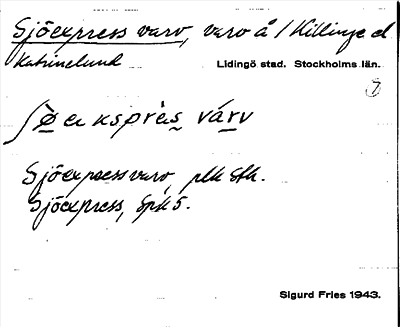 Sjöexpress varv, varv å / Killinge el
Katrinelund Lidingö stad. Stockholms län.
varv
Sjöexpressvarv, plk Sth.
Sjöexpress, Spk 5.
Sigurd Fries 1943.